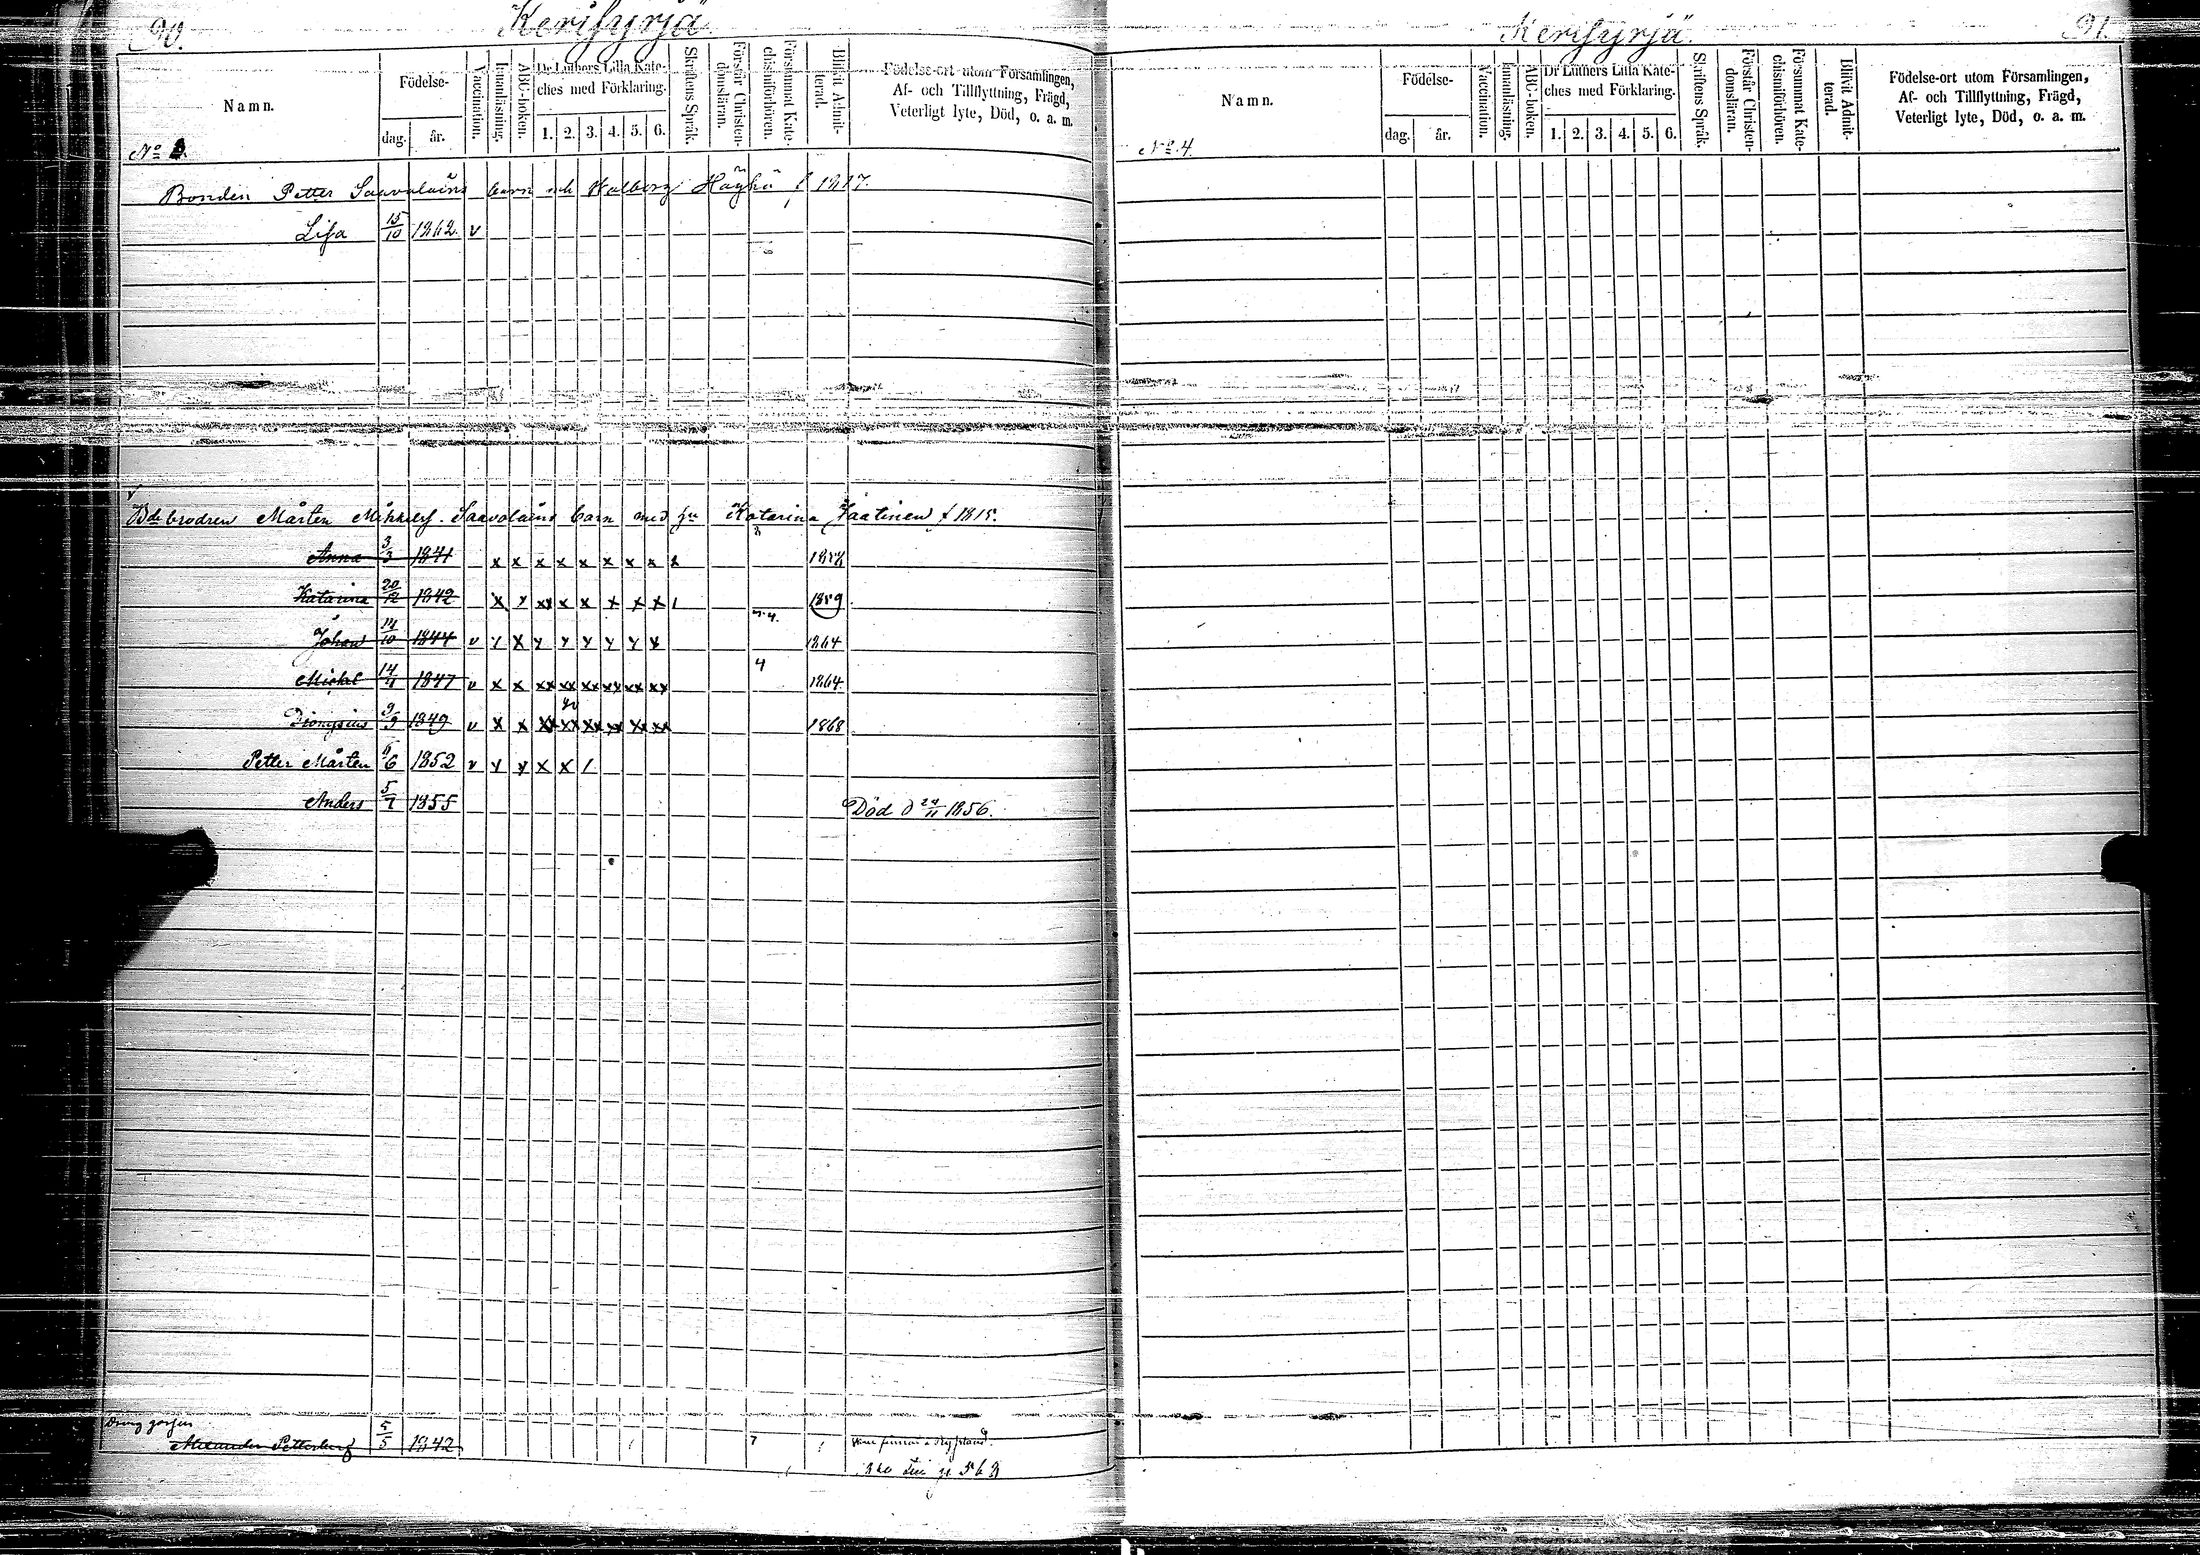 90.
Kerisyrjä
Namn.
Födelse-
dag. år.
Vaccination.
Innanläsning.
ABC-boken.
Dr Luthers Lilla Kate-
ches med Förklaring.
1. 2. 3. 4. 5. 6.
Skriftens Språk.
Förstår Christen-
domsläran.
Försummat Kate-
chismiförhören.
Blifvit Admit-
terad.
Födelse-ort utom Församlingen,
Af- och Tillflyttning, Frägd,
Veterligt lyte, Död, o. a. m.
No 3.
Bonden Petter Saavolains barn och Walborg Häyhä f 1817.
Lisa 15/10 1862. v
Bdebrodren Mårten Mikkelss. Saavolains barn med hu Katarina Jaatinen f 1815.
Anna 3/3 1841 x x x x x x x x x 1858
Katarina 20/12 1842 x x xx x x x x x 1 1859
Johan 14/10 1844 v x x x x x x x x 1864
Michel 14/11 1847 v x x xx xx xx xx xx xx 4 1864
Dionysius 9/9 1849 v x x xx xx xx xx xx xx 1868
Petter Mårten 6/6 1852 v x x x x /
Anders 5/7 1855 Död d 24/11 1856.
Dräng
Alexander Pettersberg 5/5 1842 7
568
Kerisyrjä.
91.
Namn.
Födelse-
dag. år.
Vaccination.
Innanläsning.
ABC-boken.
Dr Luthers Lilla Kate-
ches med Förklaring.
1. 2. 3. 4. 5. 6.
Skriftens Språk.
Förstår Christen-
domsläran.
Försummat Kate-
chismiförhören.
Blifvit Admit-
terad.
Födelse-ort utom Församlingen,
Af- och Tillflyttning, Frägd,
Veterligt lyte, Död, o. a. m.
No. 4.